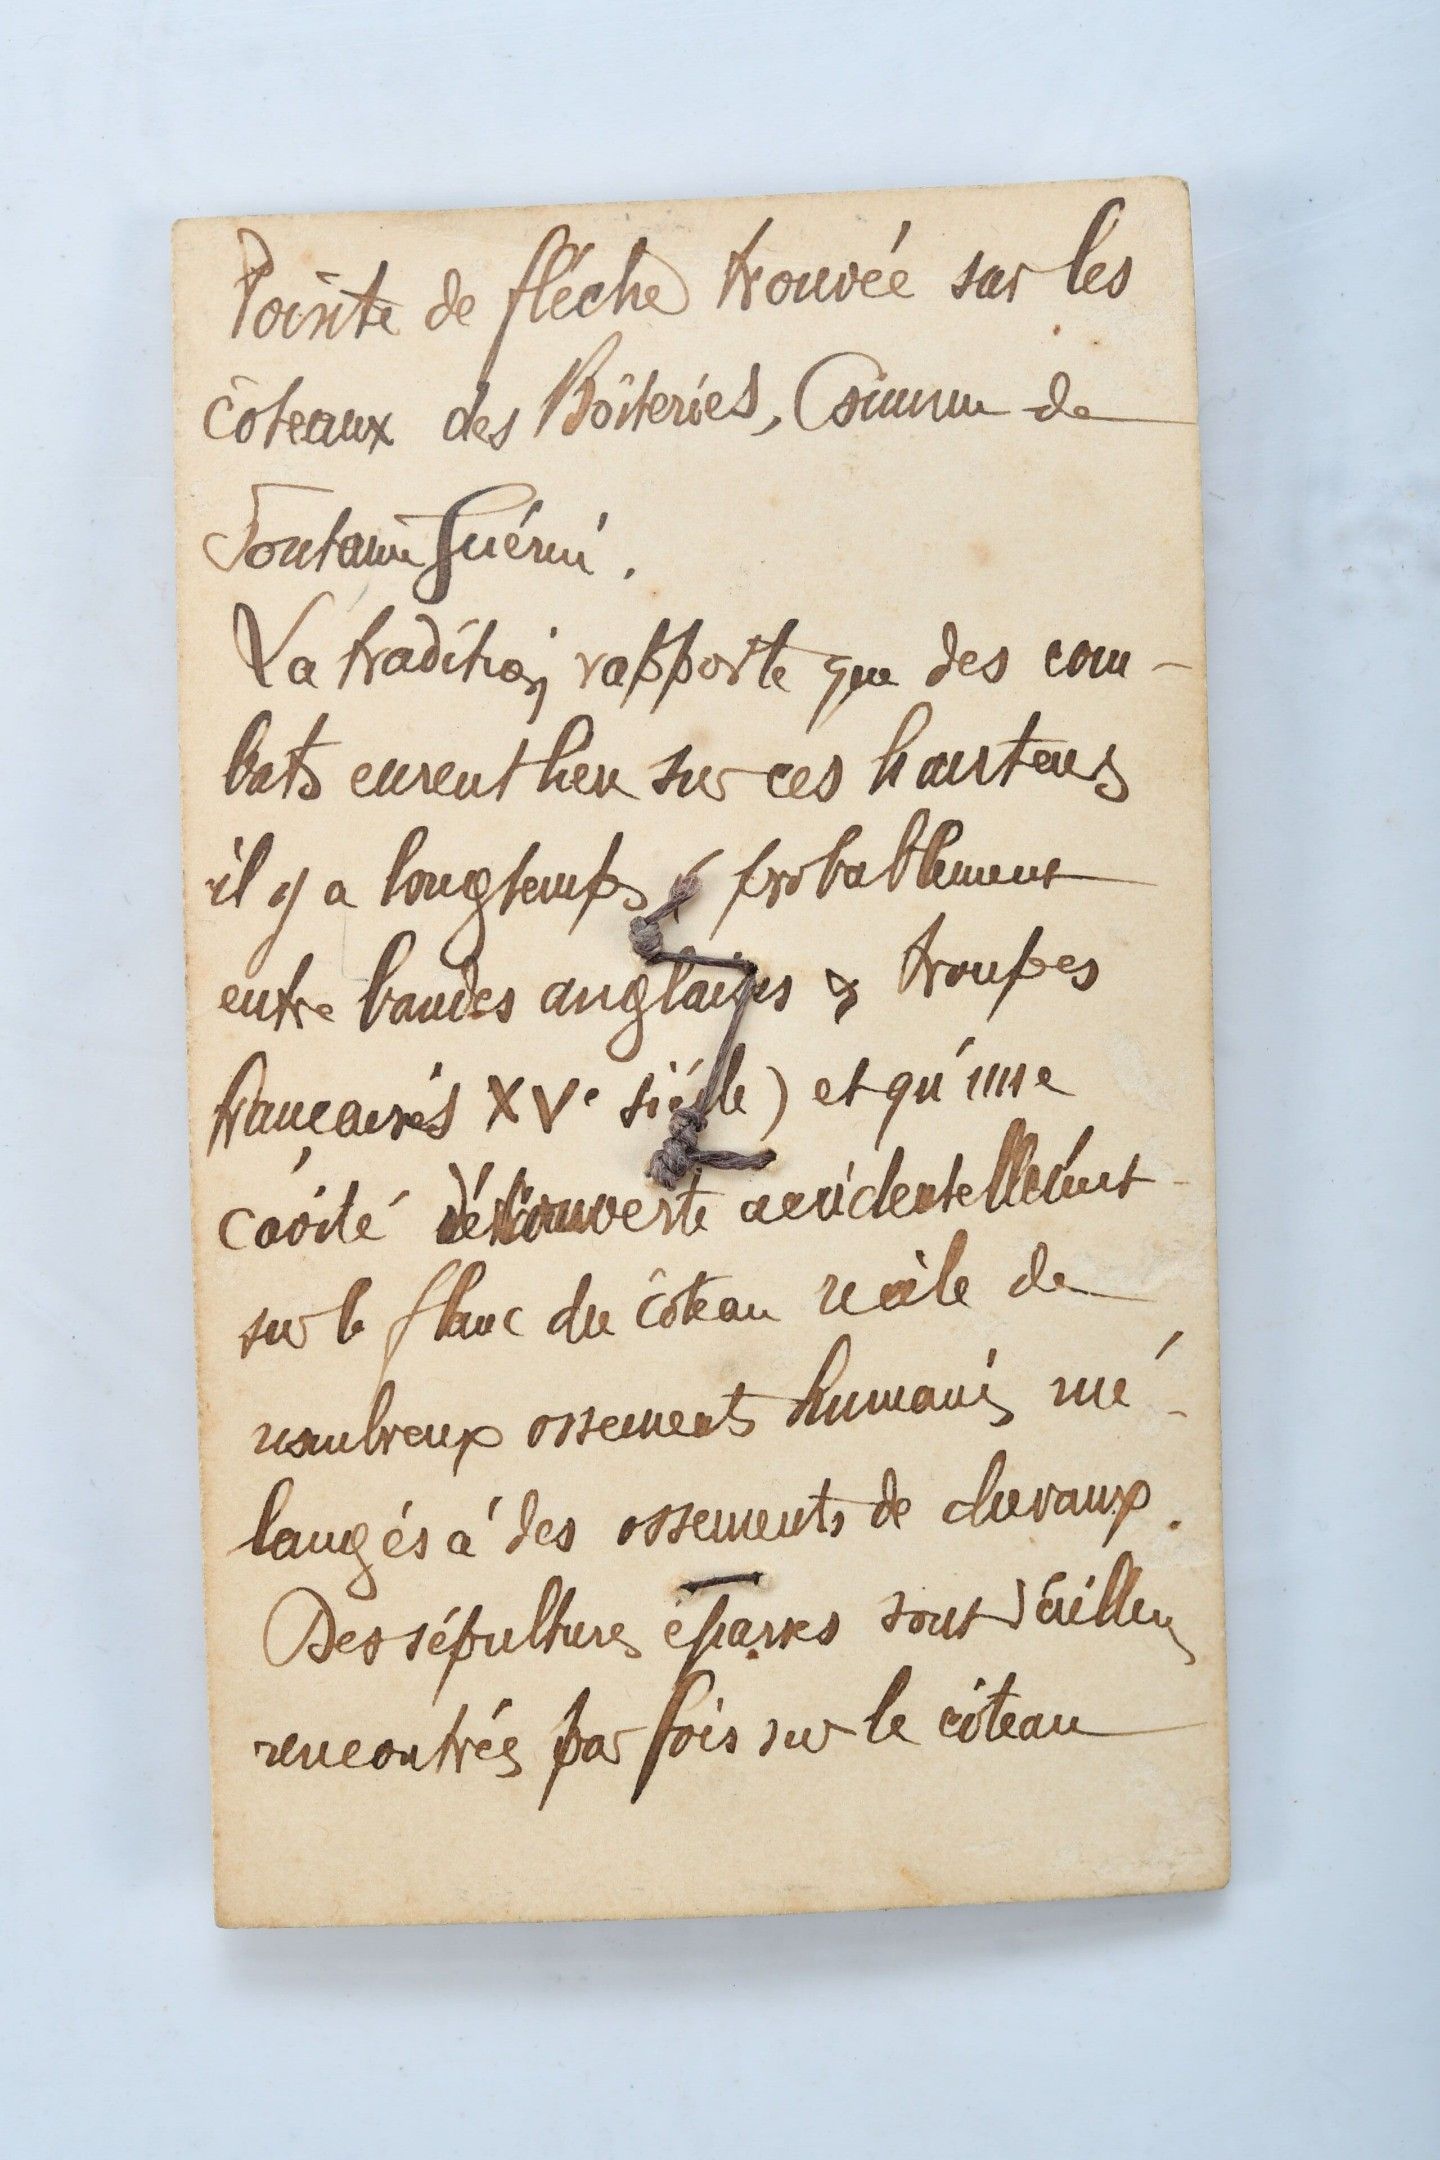 Pointe de flêche trouvée sur les
côteaux des Boîteries, Commune de
Fontaine Guérin.
La tradition rapporte que des com-
bats eurent lieu sur ces hauteurs
il y a longtemps (probablement
entre bandes anglaises & troupes
françaises XVe siècle) et qu'une
cavité découverte accidentellement
sur le flanc du côteau recèle de
nombreux ossements humains mé-
langés à des ossements de chevaux.
Des sépultures éparses sont d'ailleurs
rencontrées parfois sur le côteau